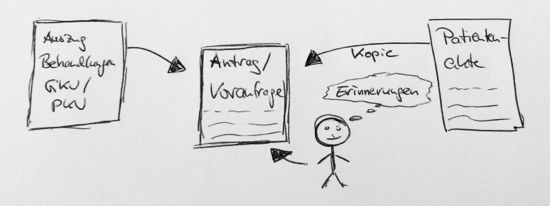 Auszug
Behandlungen
GKV/
PKV
Antrag/
Voranfrage
Kopie
Erinnerungen
Patienten-
akte